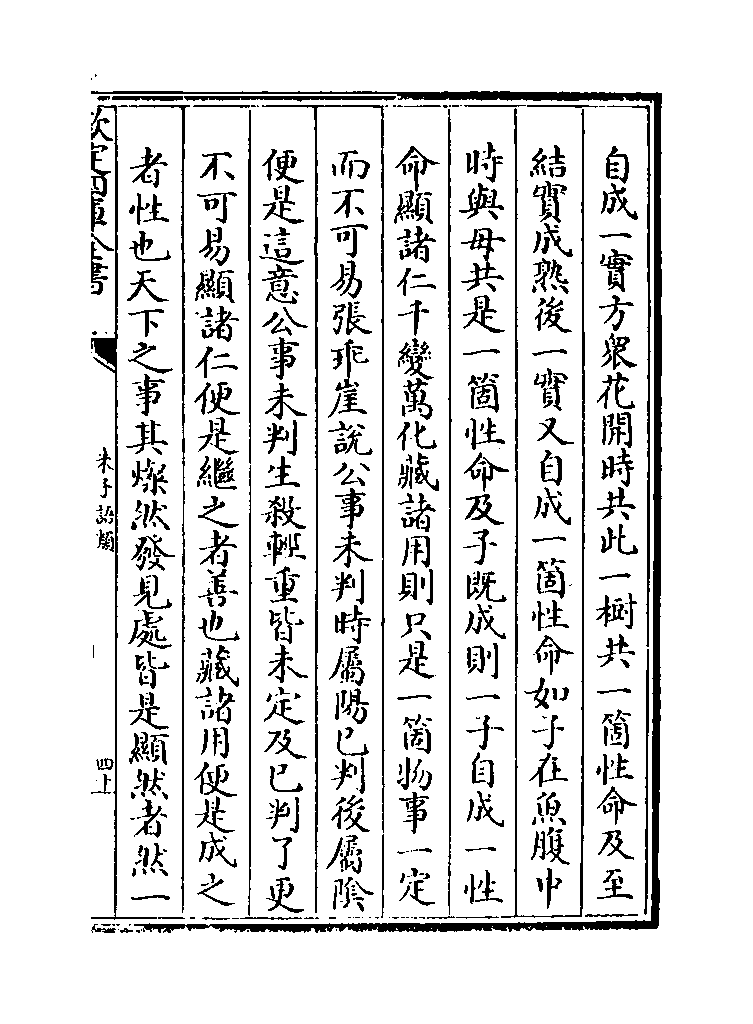 自成一實方衆花開時共此一樹共一箇性命及至
結實成熟後一實又自成一箇性命如子在魚腹中
時與母共是一箇性命及子既成則一子自成一性
命顯諸仁千變萬化藏諸用則只是一箇物事一定
而不可易張乖崖說公事未判時屬陽已判後屬陰
便是這意公事未判生殺輕重皆未定及已判了更
不可易顯諸仁便是繼之者善也藏諸用便是成之
者性也天下之事其燦然發見處皆是顯然者然一
欽定四庫全書
朱子語類
四上